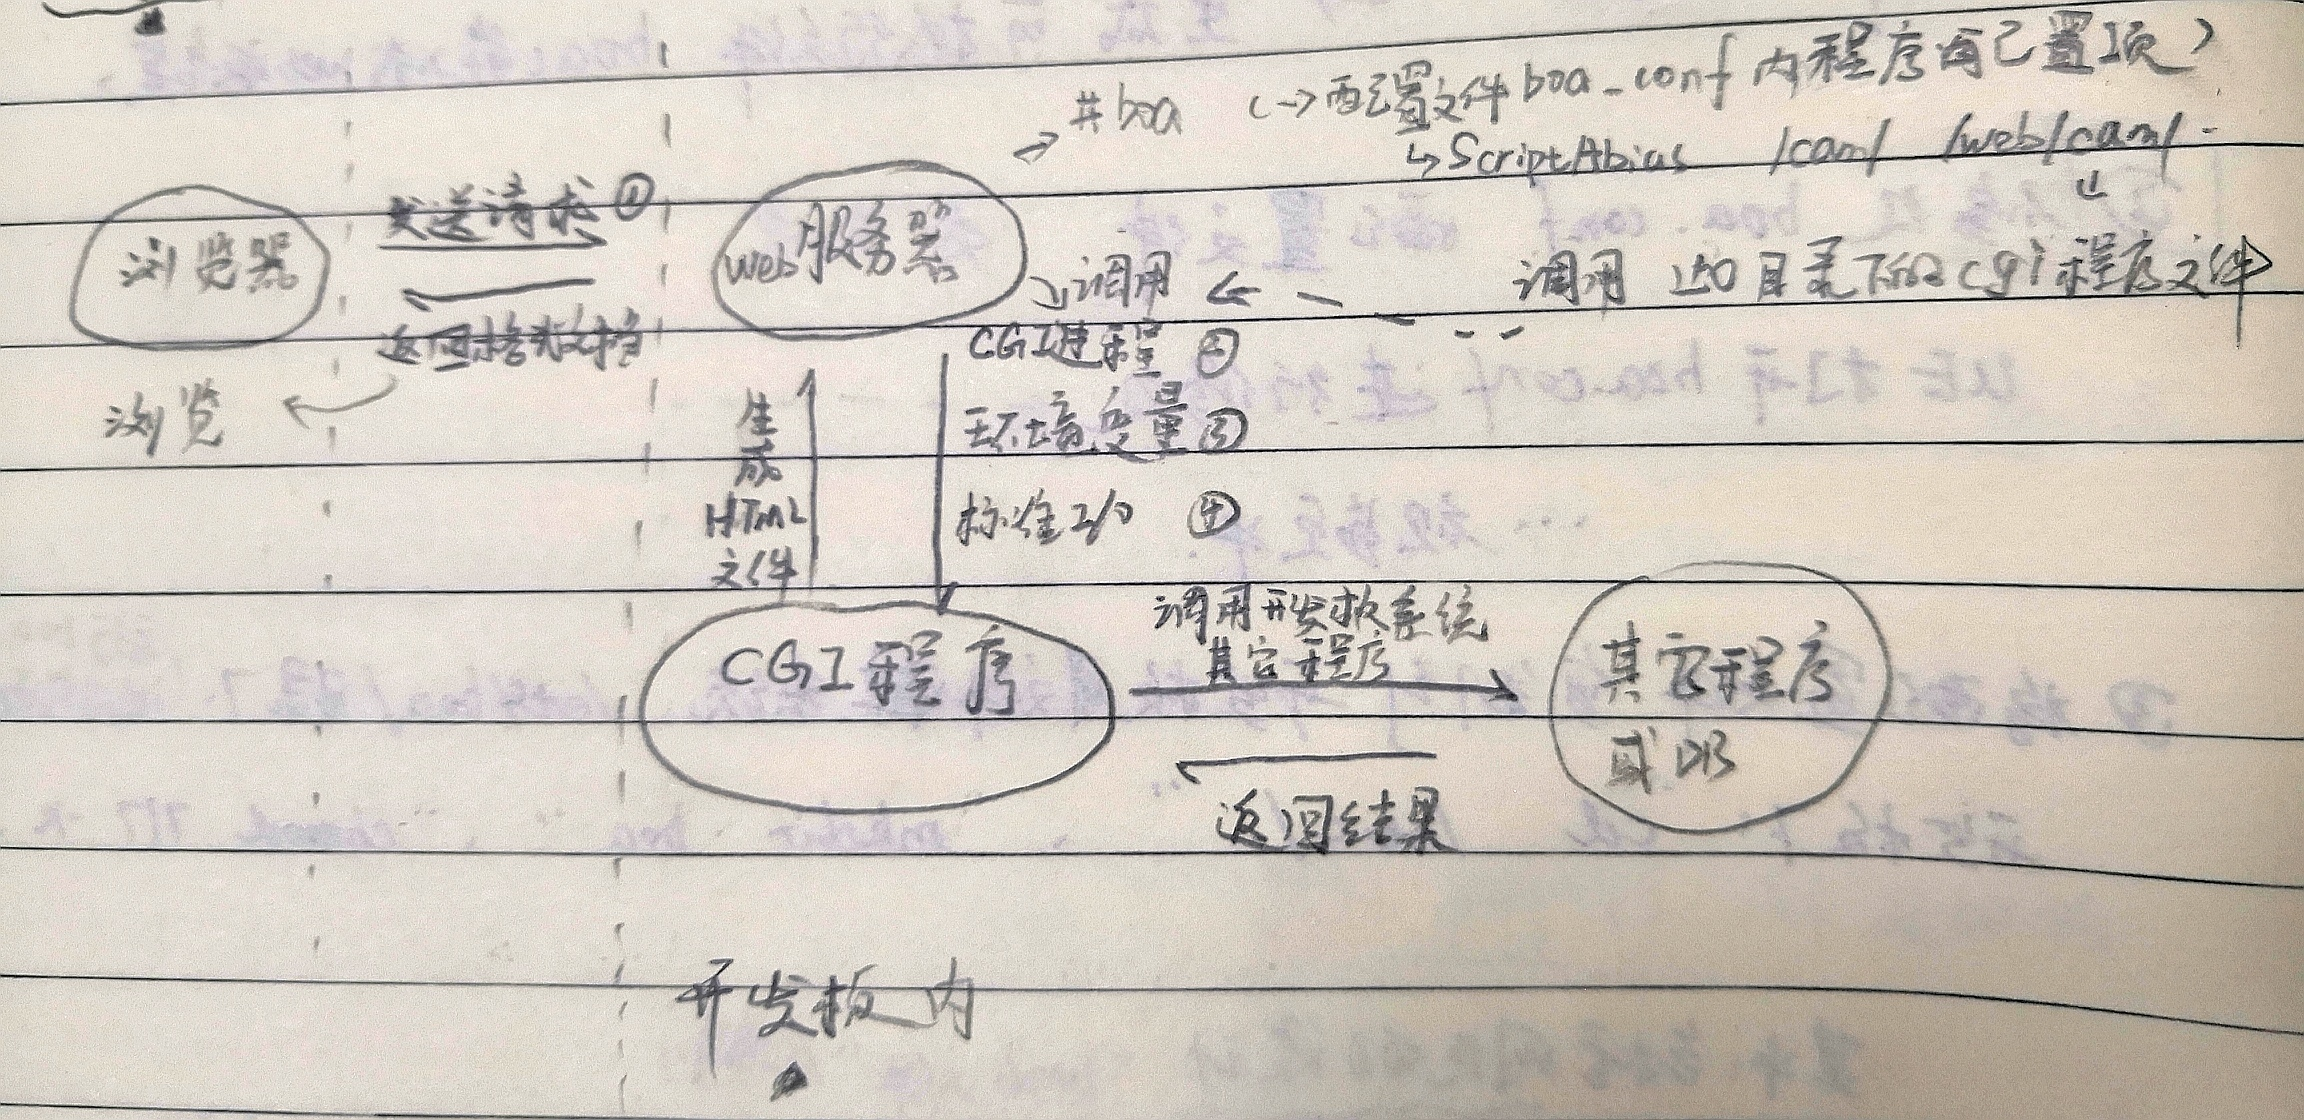 #boa (→配置文件boa_conf内程序配置项)
↳ScriptAbias /cam/ /web/cam/
调用 该目录下的cgi程序文件
发送请求①
浏览器
web服务器
返回格式文档
浏览
调用
CGI进程②
环境变量③
标准I/O ④
生成
HTML
文件
CGI程序
调用开发板系统
其它程序
其它程序
或DB
返回结果
开发板内